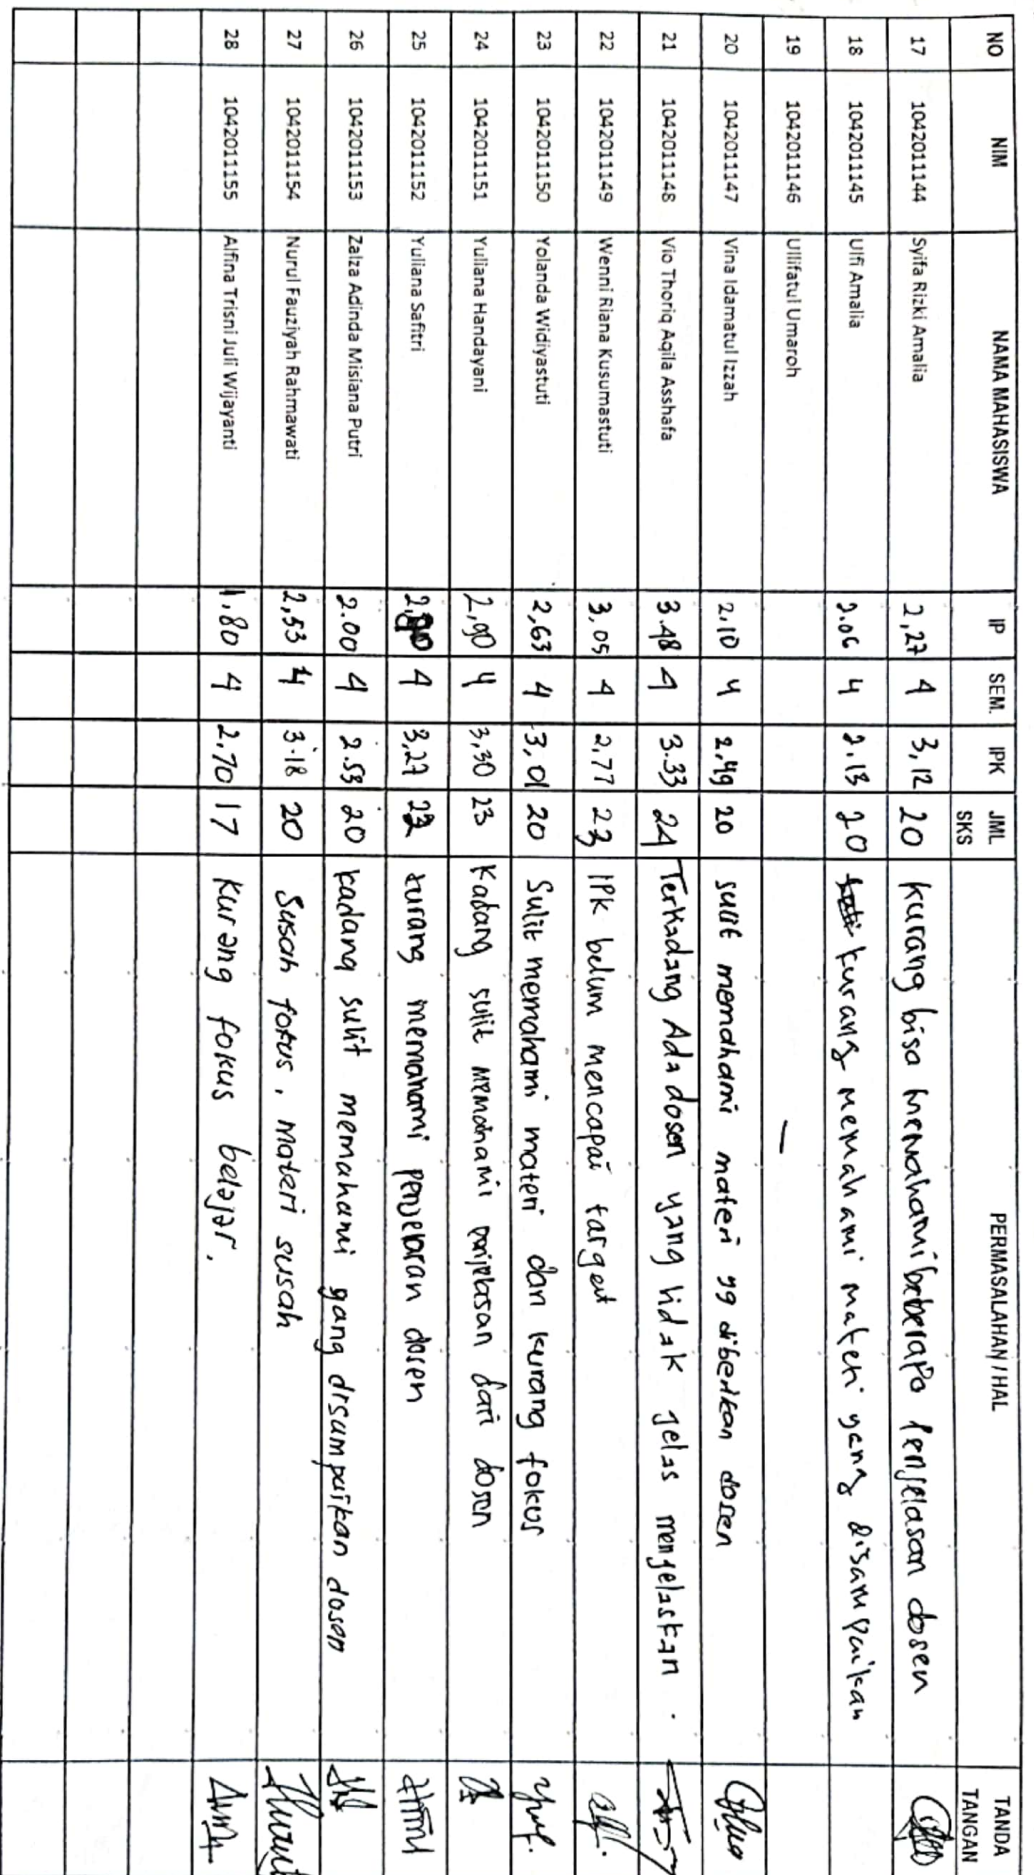 NO NIM NAMA MAHASISWA IP SEM. IPK JML SKS PERMASALAHAN / HAL TANDA TANGAN
17 1042011144 Syifa Rizki Amalia 2,27 4 3,12 20 kurang bisa memahami beberapa penjelasan dosen
18 1042011145 Ulfi Amalia 2.06 4 2.13 20 kurang memahami materi yang disampaikan
19 1042011146 Ullifatul Umaroh –
20 1042011147 Vina Idamatul Izzah 2.10 4 2,49 20 sulit memahami materi yg diberikan dosen
21 1042011148 Vio Thoriq Aqila Asshafa 3.48 4 3.33 24 Terkadang Ada dosen yang tidak jelas menjelaskan .
22 1042011149 Wenni Riana Kusumastuti 3,05 4 2,77 23 IPK belum mencapai target
23 1042011150 Yolanda Widiyastuti 2,63 4 3,01 20 Sulit memahami materi dan kurang fokus
24 1042011151 Yuliana Handayani 2,90 4 3,30 23 Kadang sulit memahami penjelasan dari dosen
25 1042011152 Yuliana Safitri 4 3,27 kurang memahami penjelasan dosen
26 1042011153 Zalza Adinda Misiana Putri 2.00 4 2.53 20 kadang sulit memahami yang disampaikan dosen
27 1042011154 Nurul Fauziyah Rahmawati 2,53 4 3.18 20 Susah fokus, materi susah
28 1042011155 Alfina Trisni Juli Wijayanti 1.80 4 2,70 17 Kurang fokus belajar.